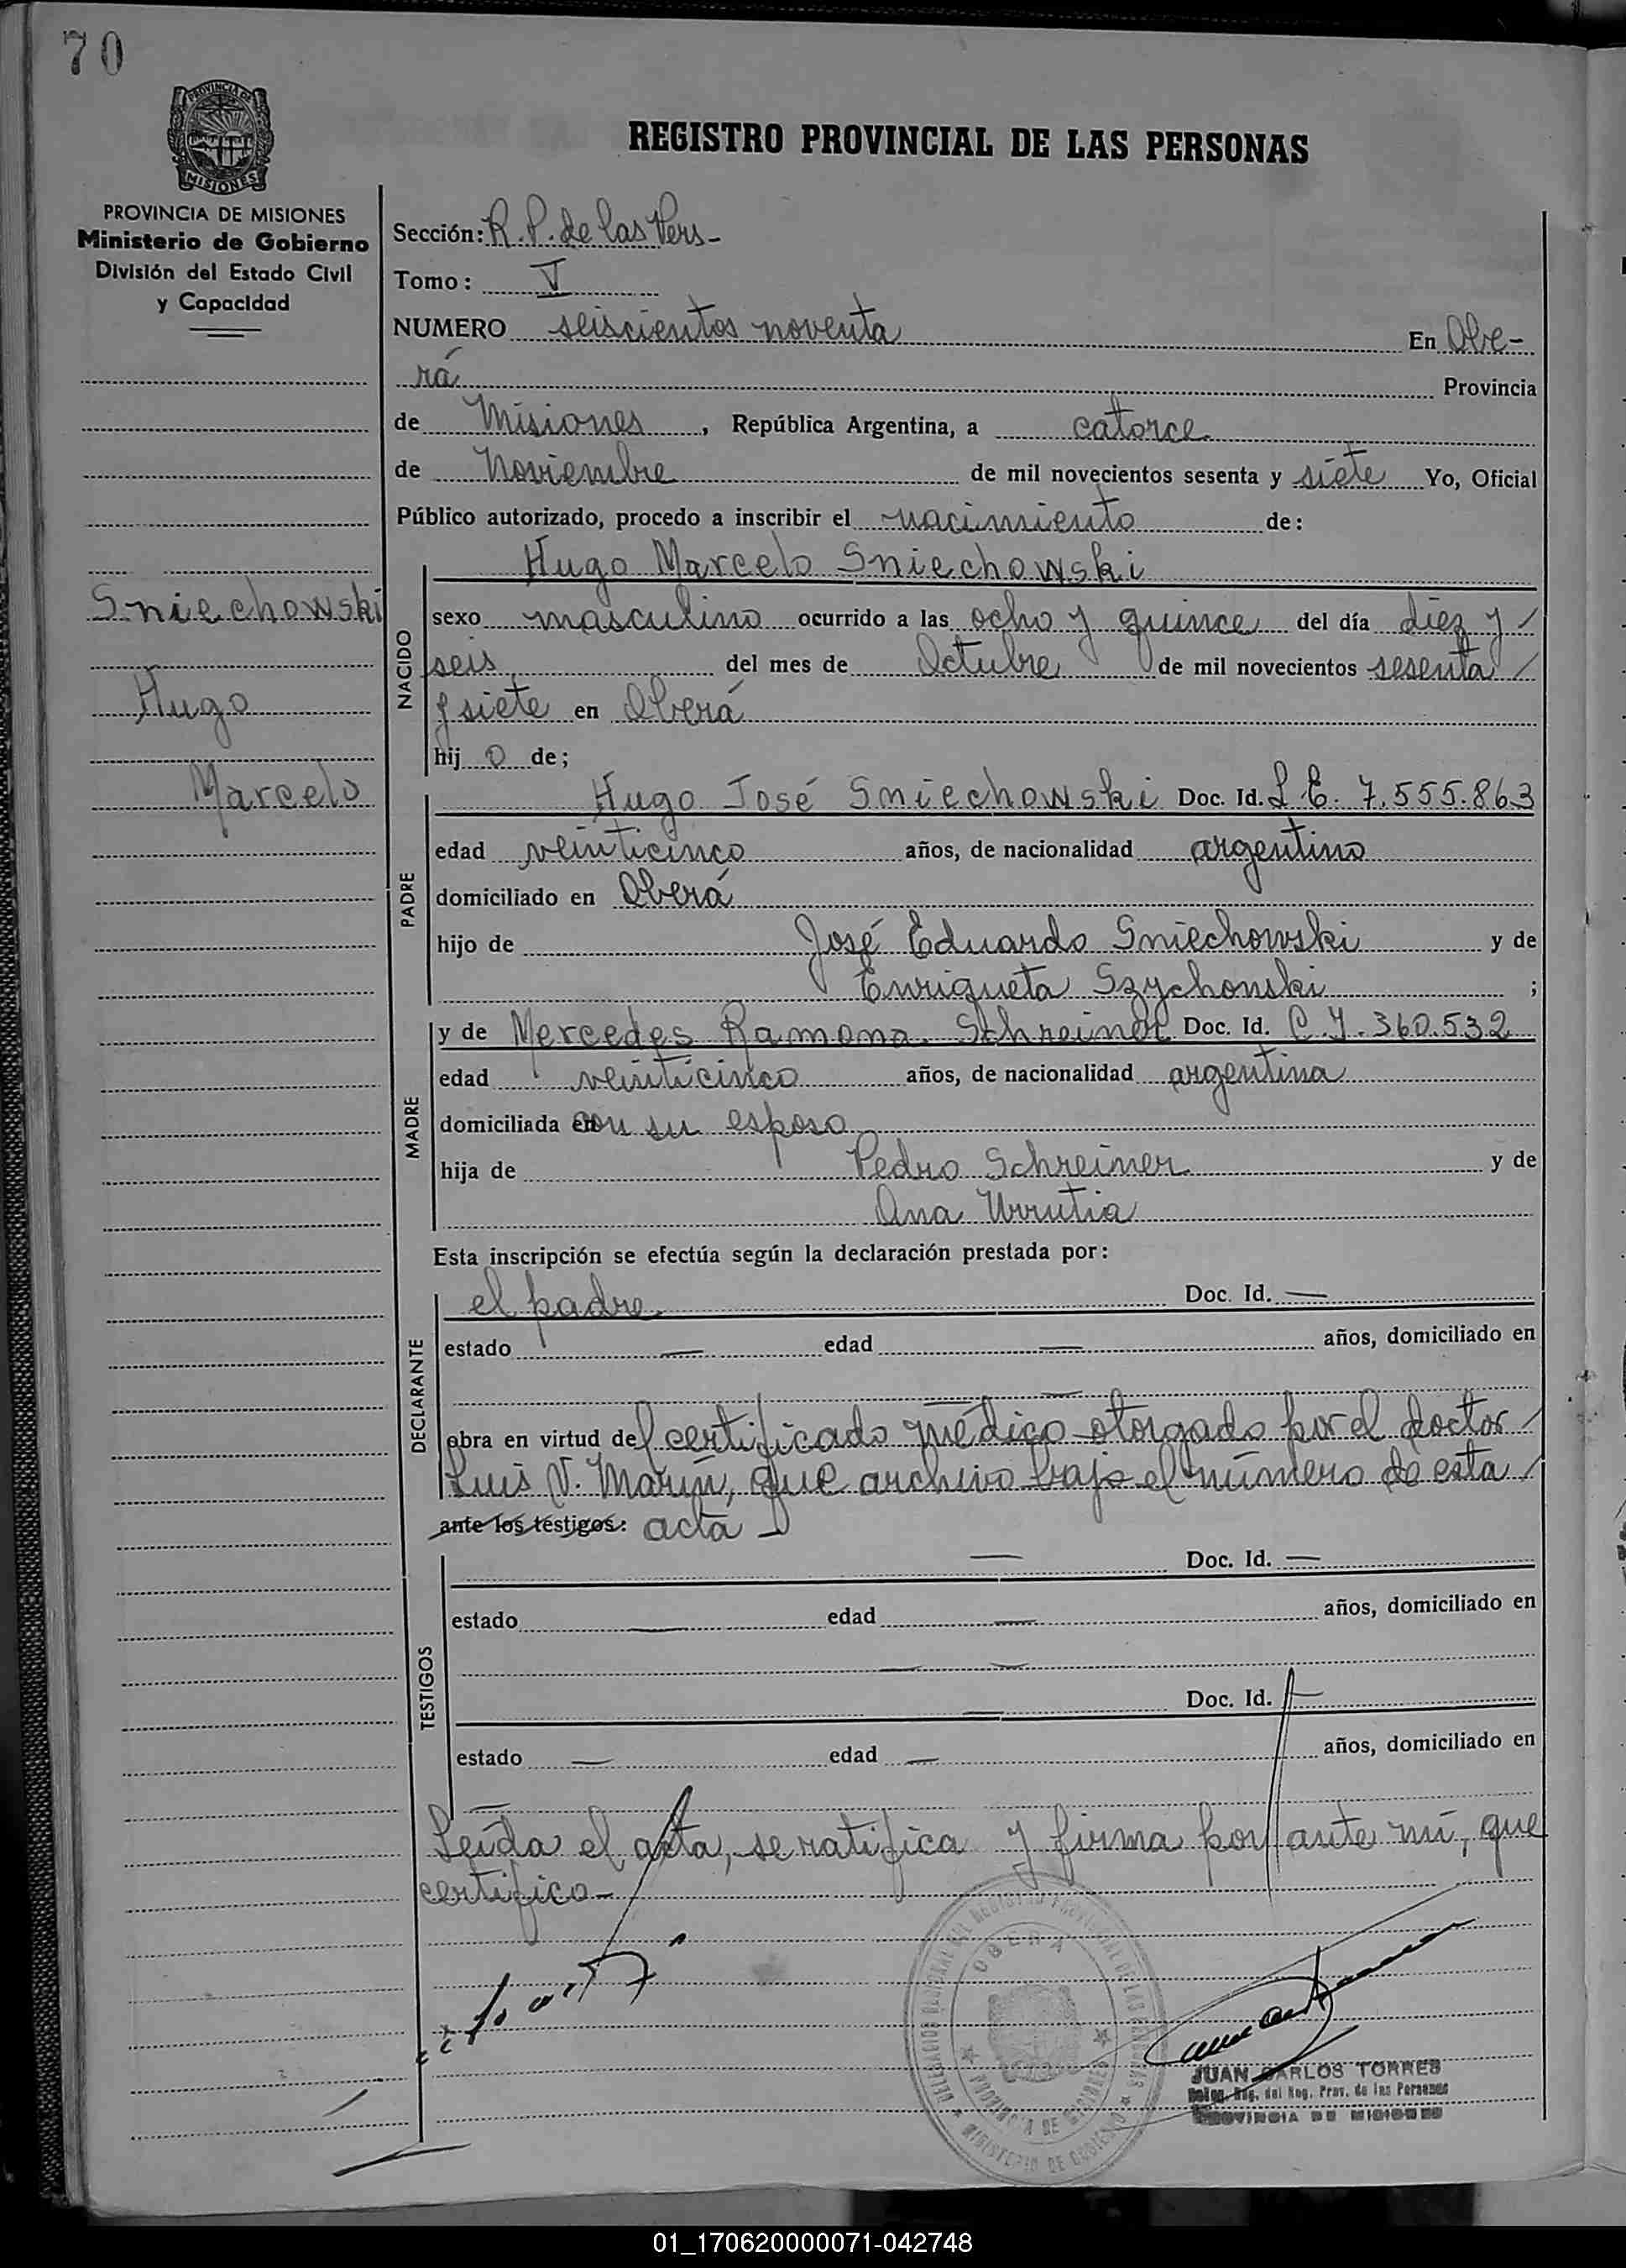 70
PROVINCIA DE
MISIONES
REGISTRO PROVINCIAL DE LAS PERSONAS
PROVINCIA DE MISIONES
Ministerio de Gobierno
División del Estado Civil
y Capacidad
Sniechowski
Hugo
Marcelo
Sección: R. P. de las Pers-
Tomo: V
NUMERO seiscientos noventa En Obe-
rá Provincia
de Misiones, República Argentina, a catorce
de Noviembre de mil novecientos sesenta y siete Yo, Oficial
Público autorizado, procedo a inscribir el nacimiento de:
Hugo Marcelo Sniechowski
NACIDO
sexo masculino ocurrido a las ocho y quince del día diez y /
seis del mes de Octubre de mil novecientos sesenta /
y siete en Oberá
hij o de;
PADRE
Hugo José Sniechowski Doc. Id. L E. 7.555.863
edad veinticinco años, de nacionalidad argentino
domiciliado en Oberá
hijo de José Eduardo Sniechowski y de
Enriqueta Szychonski ;
MADRE
y de Mercedes Ramona Schreiner Doc. Id. C. I. 360.532
edad veinticinco años, de nacionalidad argentina
domiciliada con su esposo
hija de Pedro Schreiner y de
Ana Urrutia
Esta inscripción se efectúa según la declaración prestada por:
DECLARANTE
el padre Doc. Id. —
estado — edad — años, domiciliado en
—
obra en virtud del certificado médico otorgado por el doctor /
Luis V. que archivo bajo el número de esta /
ante los testigos: acta -
TESTIGOS
— Doc. Id. —
estado — edad — años, domiciliado en
— —
— Doc. Id. —
estado — edad — años, domiciliado en
—
Leída el acta, se ratifica y firma por ante mí, que
certifico-
OBERA
PROVINCIA DE MISIONES
MINISTERIO DE GOBIERNO
JUAN CARLOS TORRES
Deleg. Reg. del Reg. Prov. de las Personas
PROVINCIA DE MISIONES
01_170620000071-042748